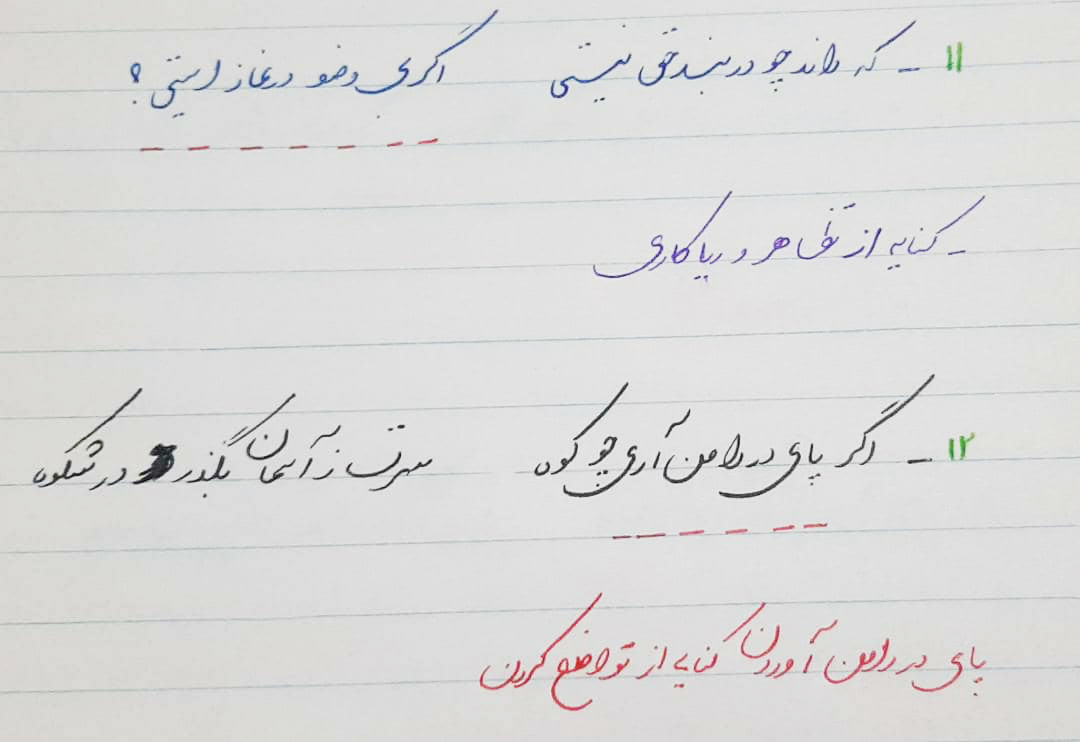 ۱۱ - که داند چو در بند حق نیستی اگر بی وضو در نماز ایستی؟
- کنایه از تظاهر و ریا کاری
۱۲ - اگر پای در دامن آری چو کوه سرت ز آسمان بگذرد در شکوه
پای در دامن آوردن کنایه از تواضع کردن